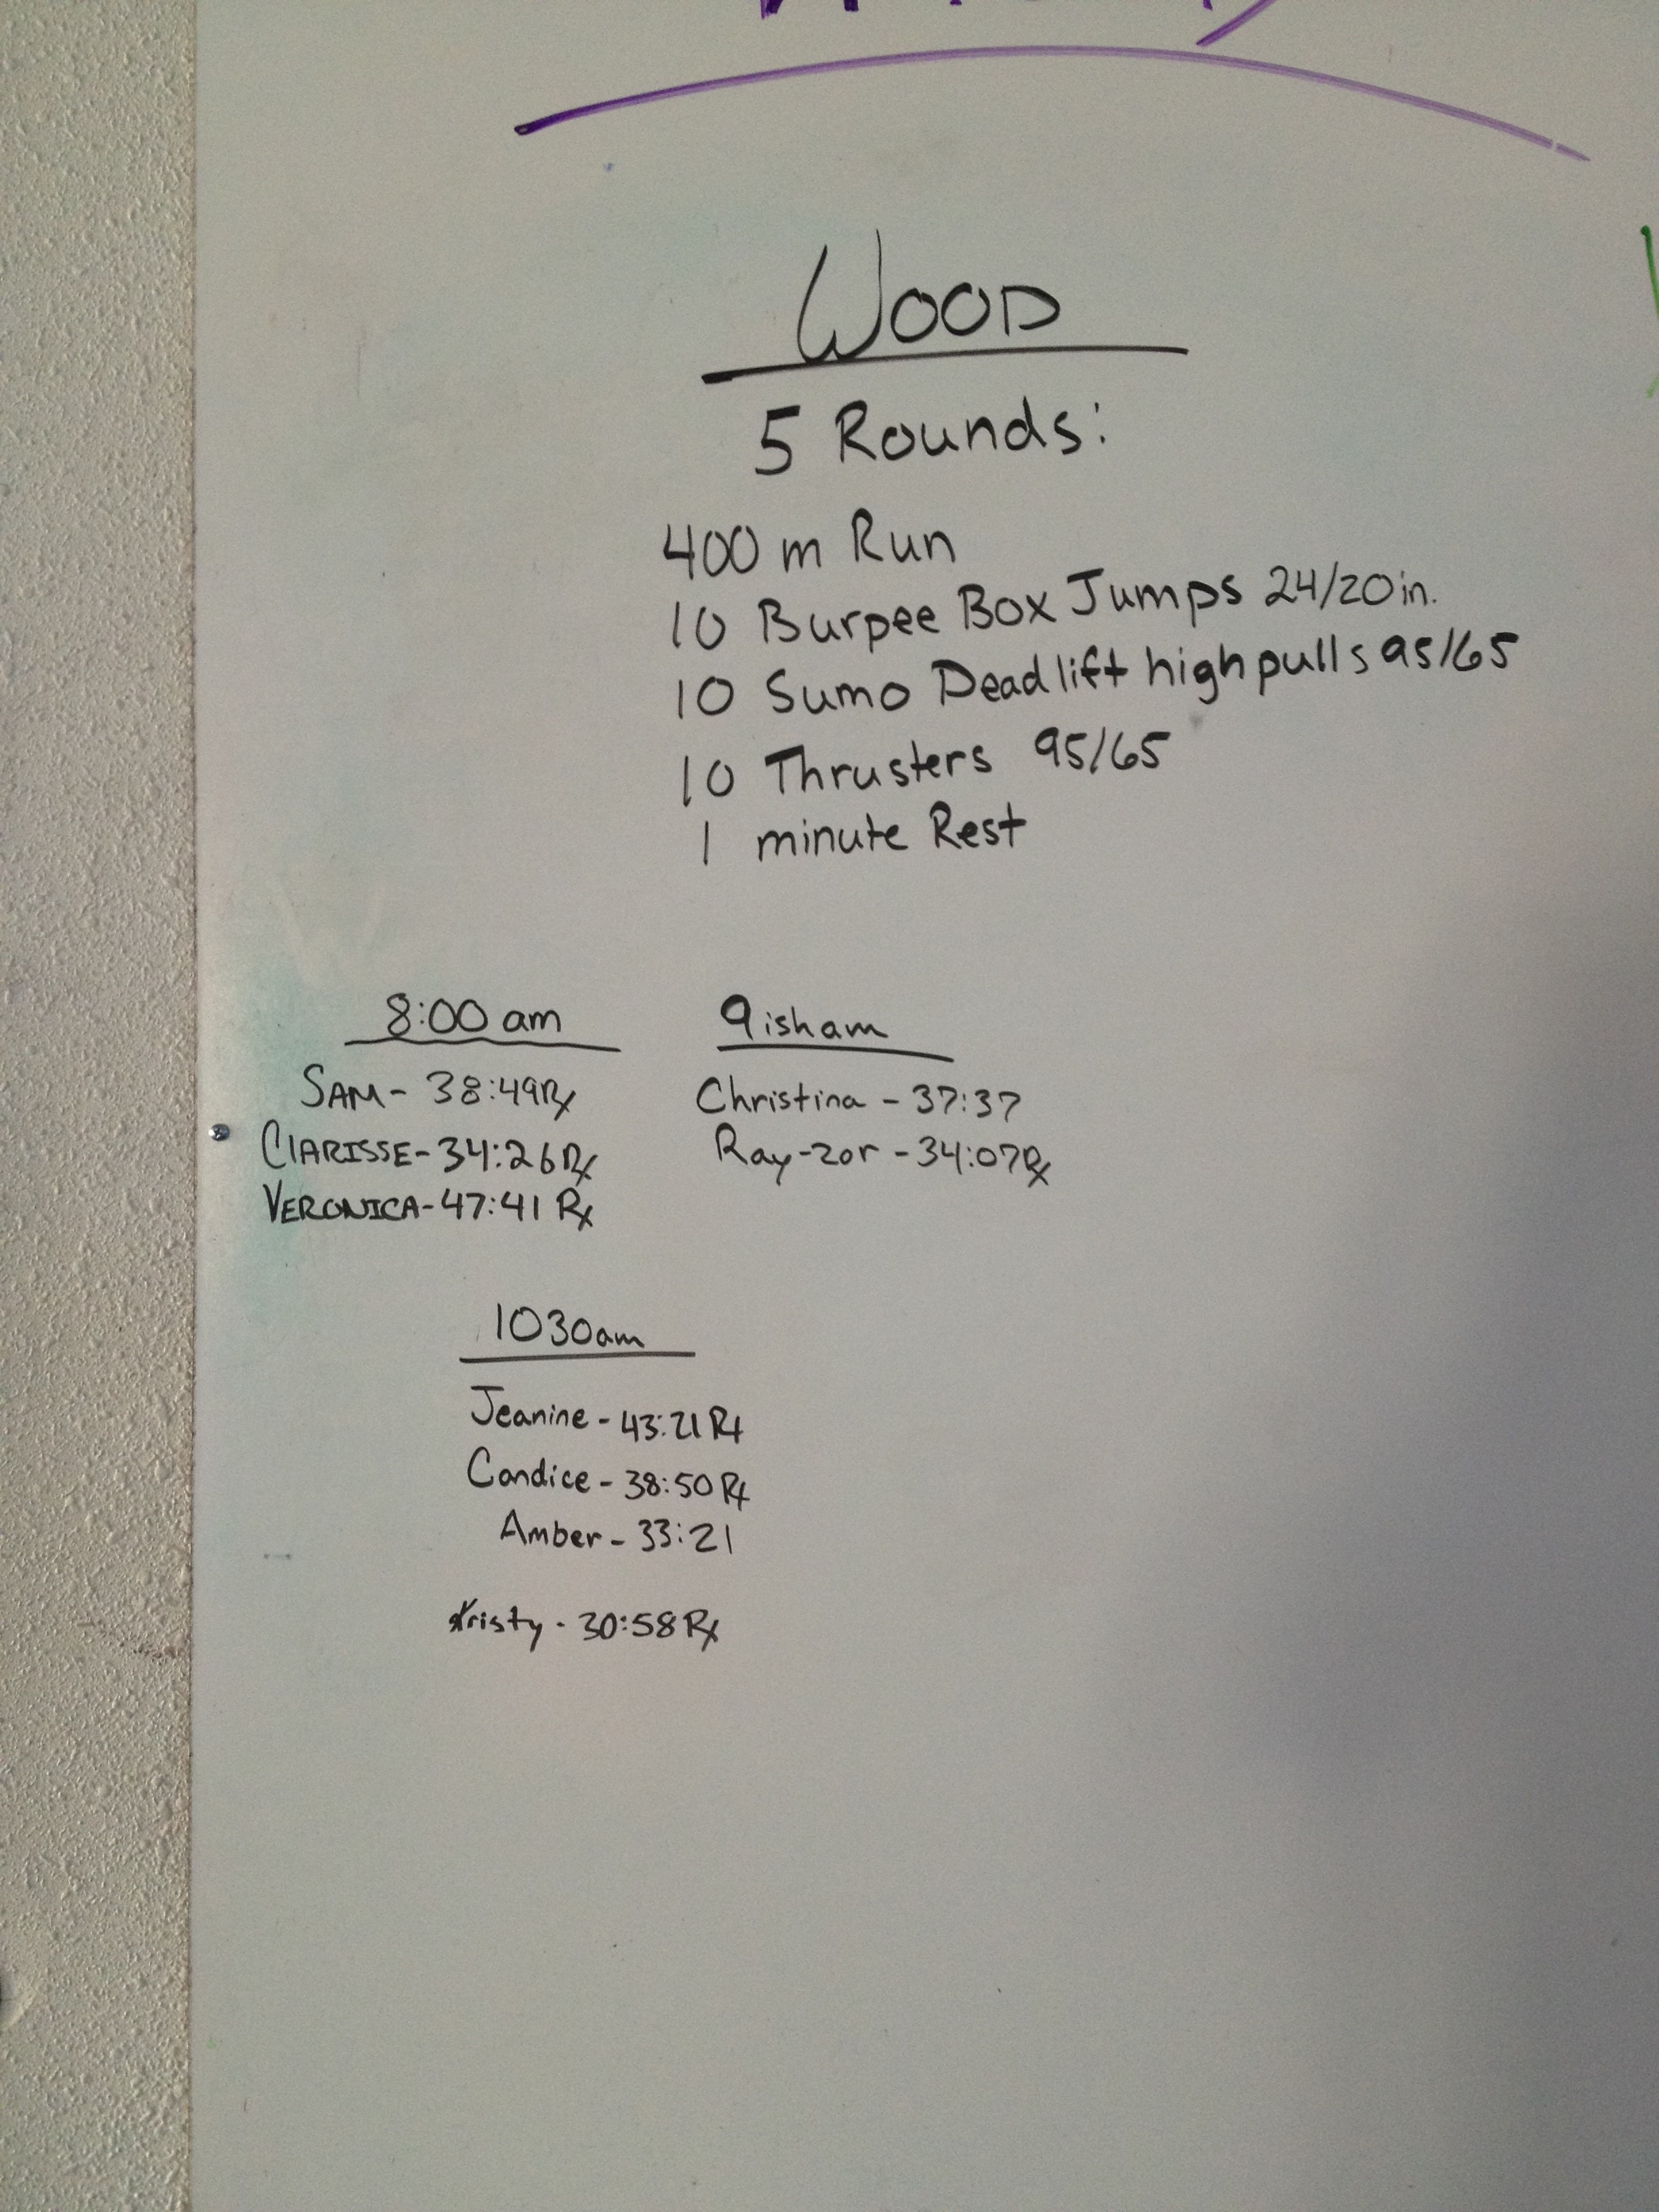 WOOD
5 Rounds:
400 m Run
10 Burpee Box Jumps 24/20in.
10 Sumo Deadlift high pulls 95/65
10 Thrusters 95/65
1 minute Rest
8:00 am
SAM- 38:49Rx
CLARISSE-34:26Rx
VERONICA-47:41 Rx
9ish am
Christina - 37:37
Ray-zor - 34:07Rx
1030am
Jeanine - 43:21 Rx
Candice - 38:50 Rx
Amber - 33:21
Kristy - 30:58 Rx